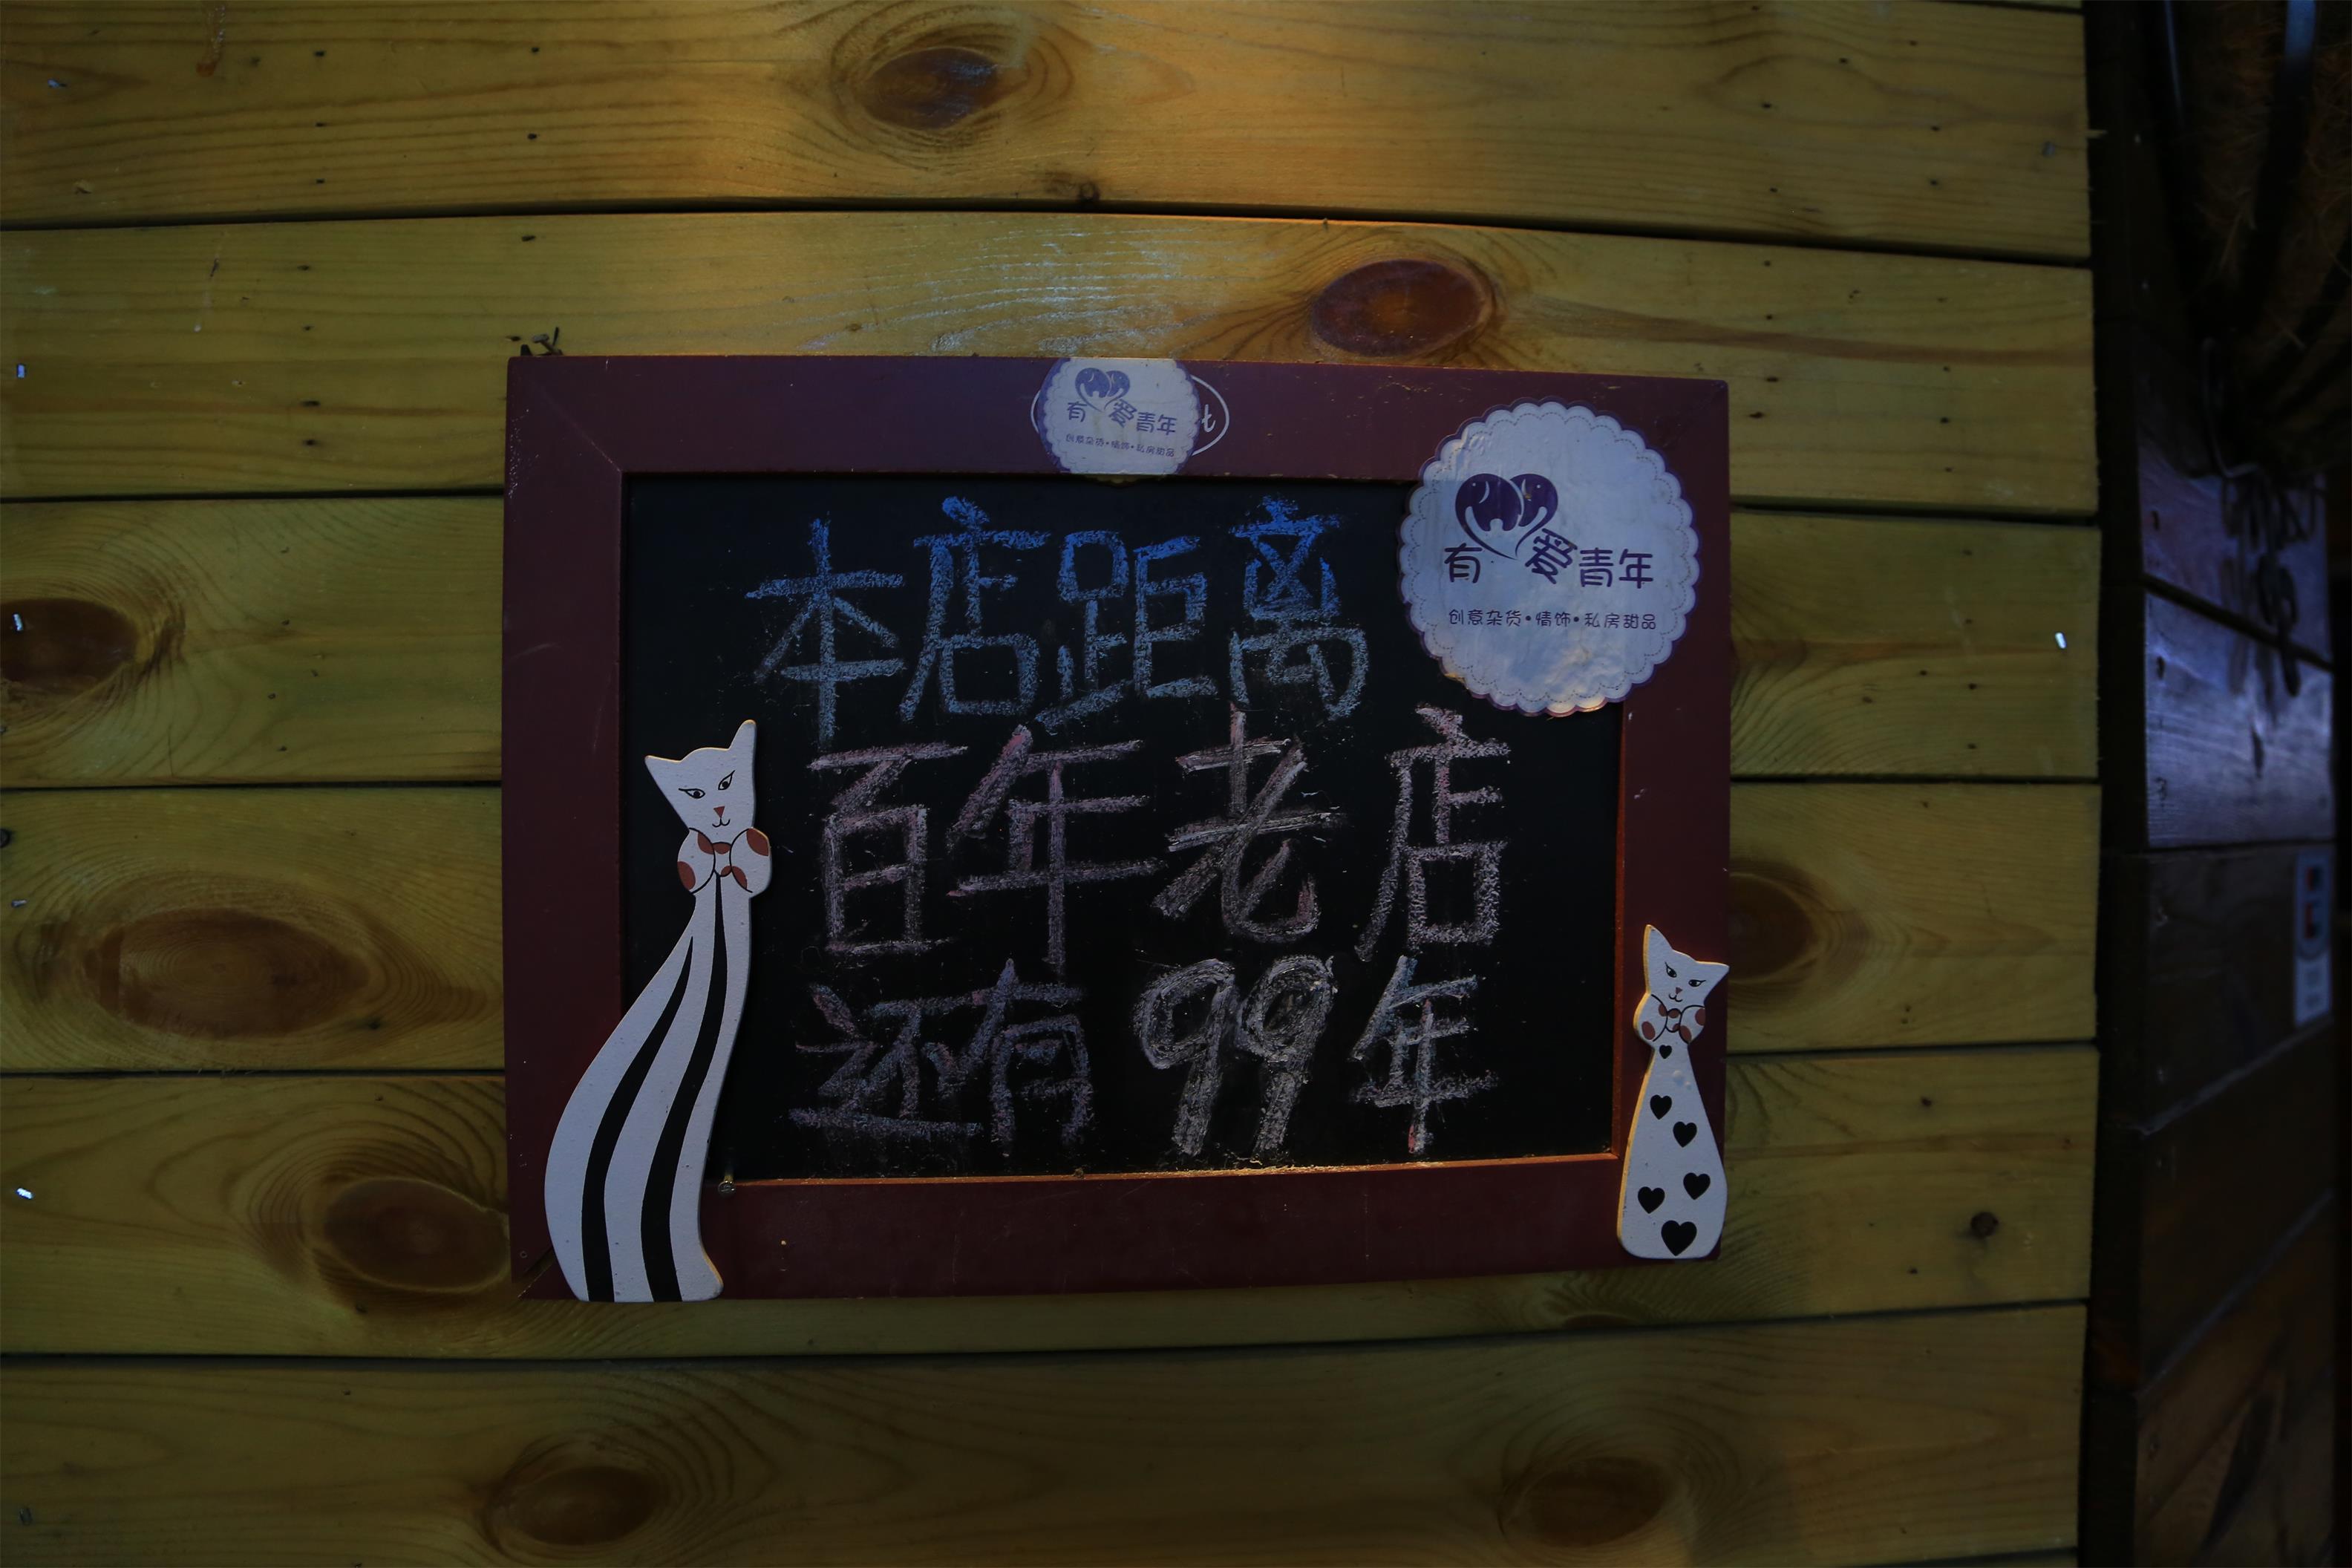 有爱青年
创意杂货•情饰•私房甜品
t
有爱青年
创意杂货•情饰•私房甜品
本店距离
百年老店
还有99年